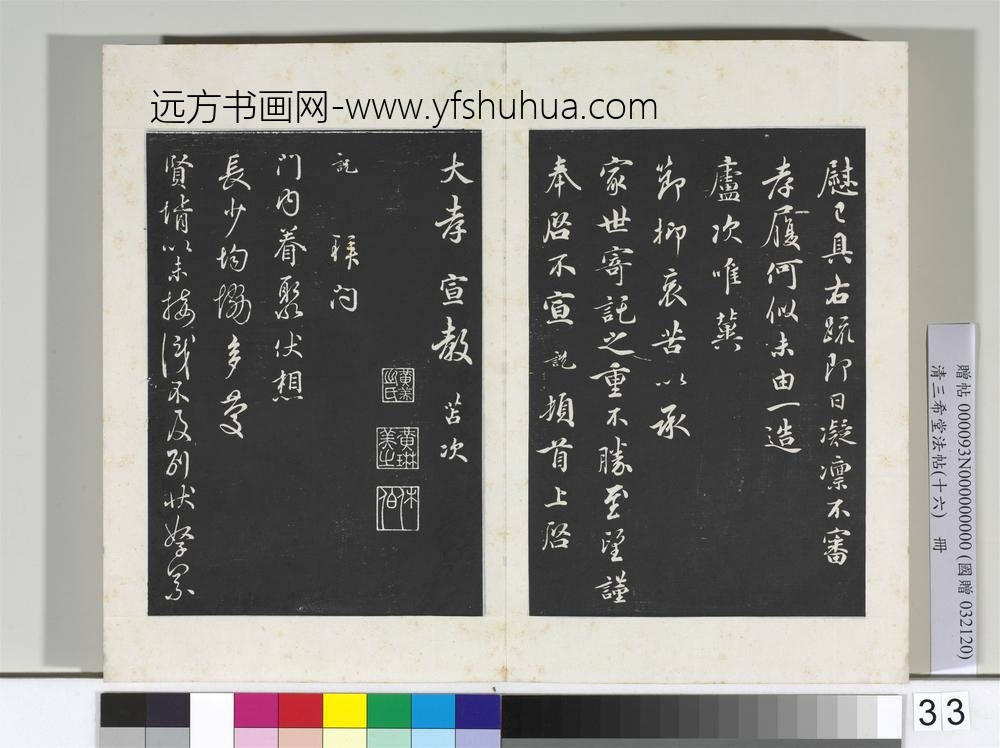 远方书画网-www.yfshuhua.com
慰已具右疏即日凝凛不審
孝履何似未由一造
廬次唯冀
節抑哀苦以承
家世寄託之重不勝至望謹
奉啓不宣 説 頓首上啓
大孝宣教 苫次
説 拜问
门内眷聚伏想
長少均協多慶
賢壻以未接識不及别状
黄琳
美之
休伯
贈帖 000093N000000000 (國贈 032120)
清三希堂法帖(十六) 冊
33